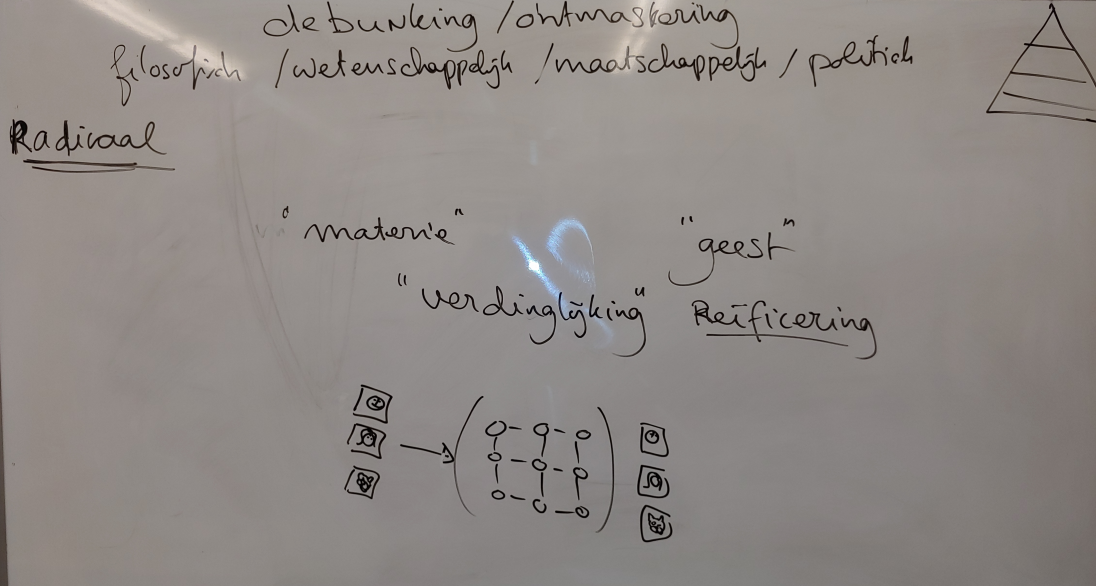 debunking / ontmaskering
filosofisch / wetenschappelijk / maatschappelijk / politich
Radicaal
"materie" "geest"
"verdinglijking" Reïficering